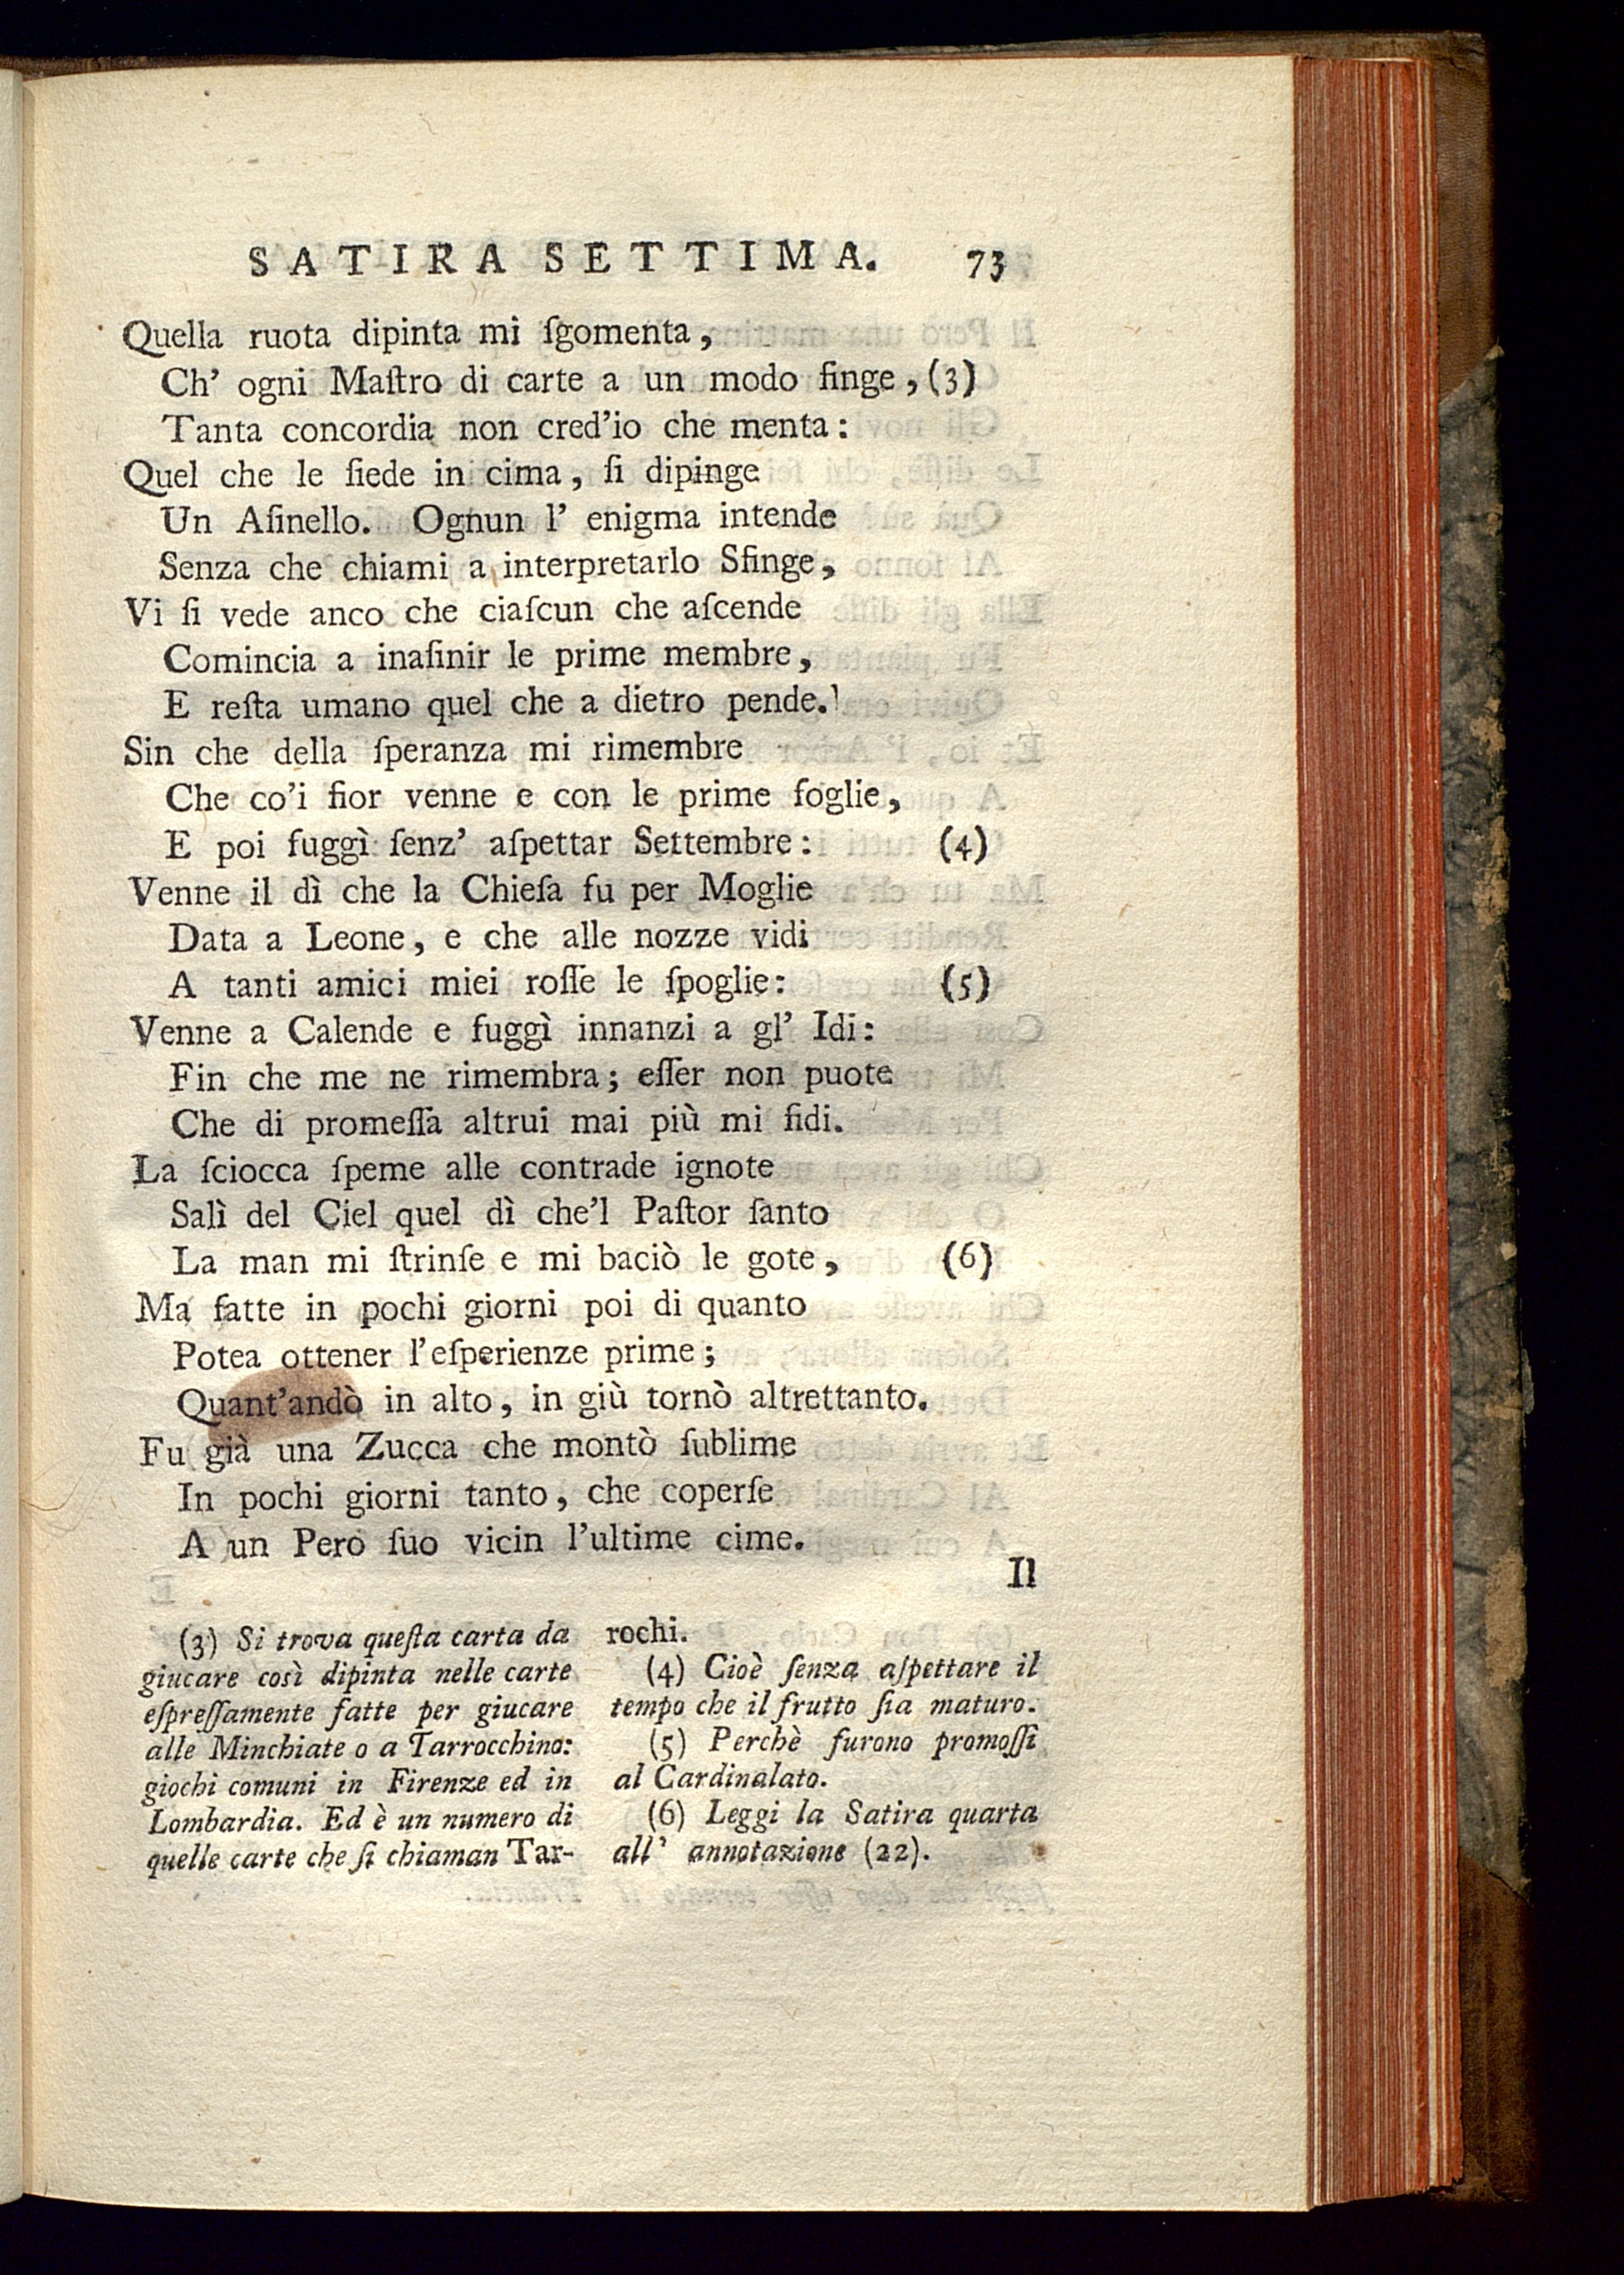 SATIRA SETTIMA. 73
Quella ruota dipinta mi ſgomenta,
Ch' ogni Maſtro di carte a un modo finge, (3)
Tanta concordia non cred'io che menta:
Quel che le ſiede in cima, ſi dipinge
Un Aſinello. Ognun l' enigma intende
Senza che chiami a interpretarlo Sfinge,
Vi ſi vede anco che ciaſcun che aſcende
Comincia a inaſinir le prime membre,
E reſta umano quel che a dietro pende.
Sin che della ſperanza mi rimembre
Che co'i fior venne e con le prime foglie,
E poi fuggì ſenz' aſpettar Settembre: (4)
Venne il dì che la Chieſa fu per Moglie
Data a Leone, e che alle nozze vidi
A tanti amici miei roſſe le ſpoglie: (5)
Venne a Calende e fuggì innanzi a gl' Idi:
Fin che me ne rimembra; eſſer non puote
Che di promeſſa altrui mai più mi fidi.
La ſciocca ſpeme alle contrade ignote
Salì del Ciel quel dì che'l Paſtor ſanto
La man mi ſtrinſe e mi baciò le gote, (6)
Ma fatte in pochi giorni poi di quanto
Potea ottener l'eſperienze prime;
Quant'andò in alto, in giù tornò altrettanto.
Fu già una Zucca che montò ſublime
In pochi giorni tanto, che coperſe
A un Pero ſuo vicin l'ultime cime.
Il
(3) Si trova queſta carta da
giucare così dipinta nelle carte
eſpreſſamente fatte per giucare
alle Minchiate o a Tarrocchino:
giochi comuni in Firenze ed in
Lombardia. Ed è un numero di
quelle carte che ſi chiaman Tar-
rochi.
(4) Cioè ſenza aſpettare il
tempo che il frutto ſia maturo.
(5) Perchè furono promoſſi
al Cardinalato.
(6) Leggi la Satira quarta
all' annotazione (22).